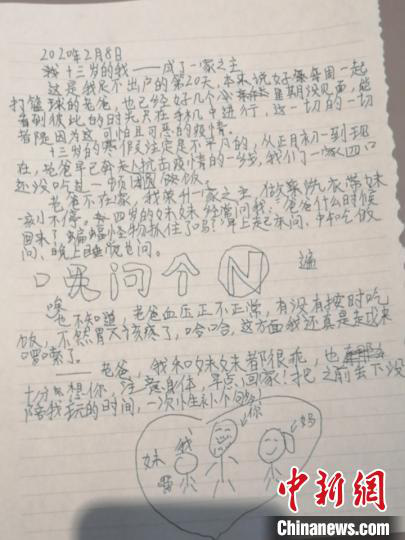 2020年2月8日
十三岁的我——成了一家之主
这是我足不出户的第20天,本来说好每周一起
打篮球的老爸,也已经好几个星期没见面,能
看到彼此的时光只在手机中进行,这一切的一切
都是因为这可怕且可恶的疫情。
十三岁的寒假注定是不平凡的,从正月初一到现
在,老爸早已奔走抗击疫情的一线,我们一家四口
还没吃过一顿团圆饭。
老爸不在家,我荣升一家之主,做菜洗衣带妹
一刻不停。四岁的妹妹经常问我,"爸爸什么时候
回来?蝙蝠怪物抓住了吗?"早上起来问、中午吃饭
问、晚上睡觉也问。
一天问个N遍
唉
也不知道,老爸血压正不正常,有没有按时吃
饭,不然胃又该疼了,哈哈,这方面我还真是越来
啰嗦了。
——老爸,我和妹妹都很乖,也
十分想你,注意身体,早点回家!把之前去下没
陪我玩的时间,一次性补个够!
妹 我 你 妈
中新网
Chinanews.com